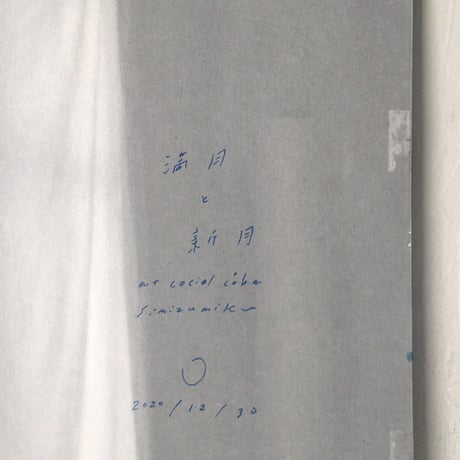 満月
と
新月
at cocial cåbe
simizumiku
2020/12/30